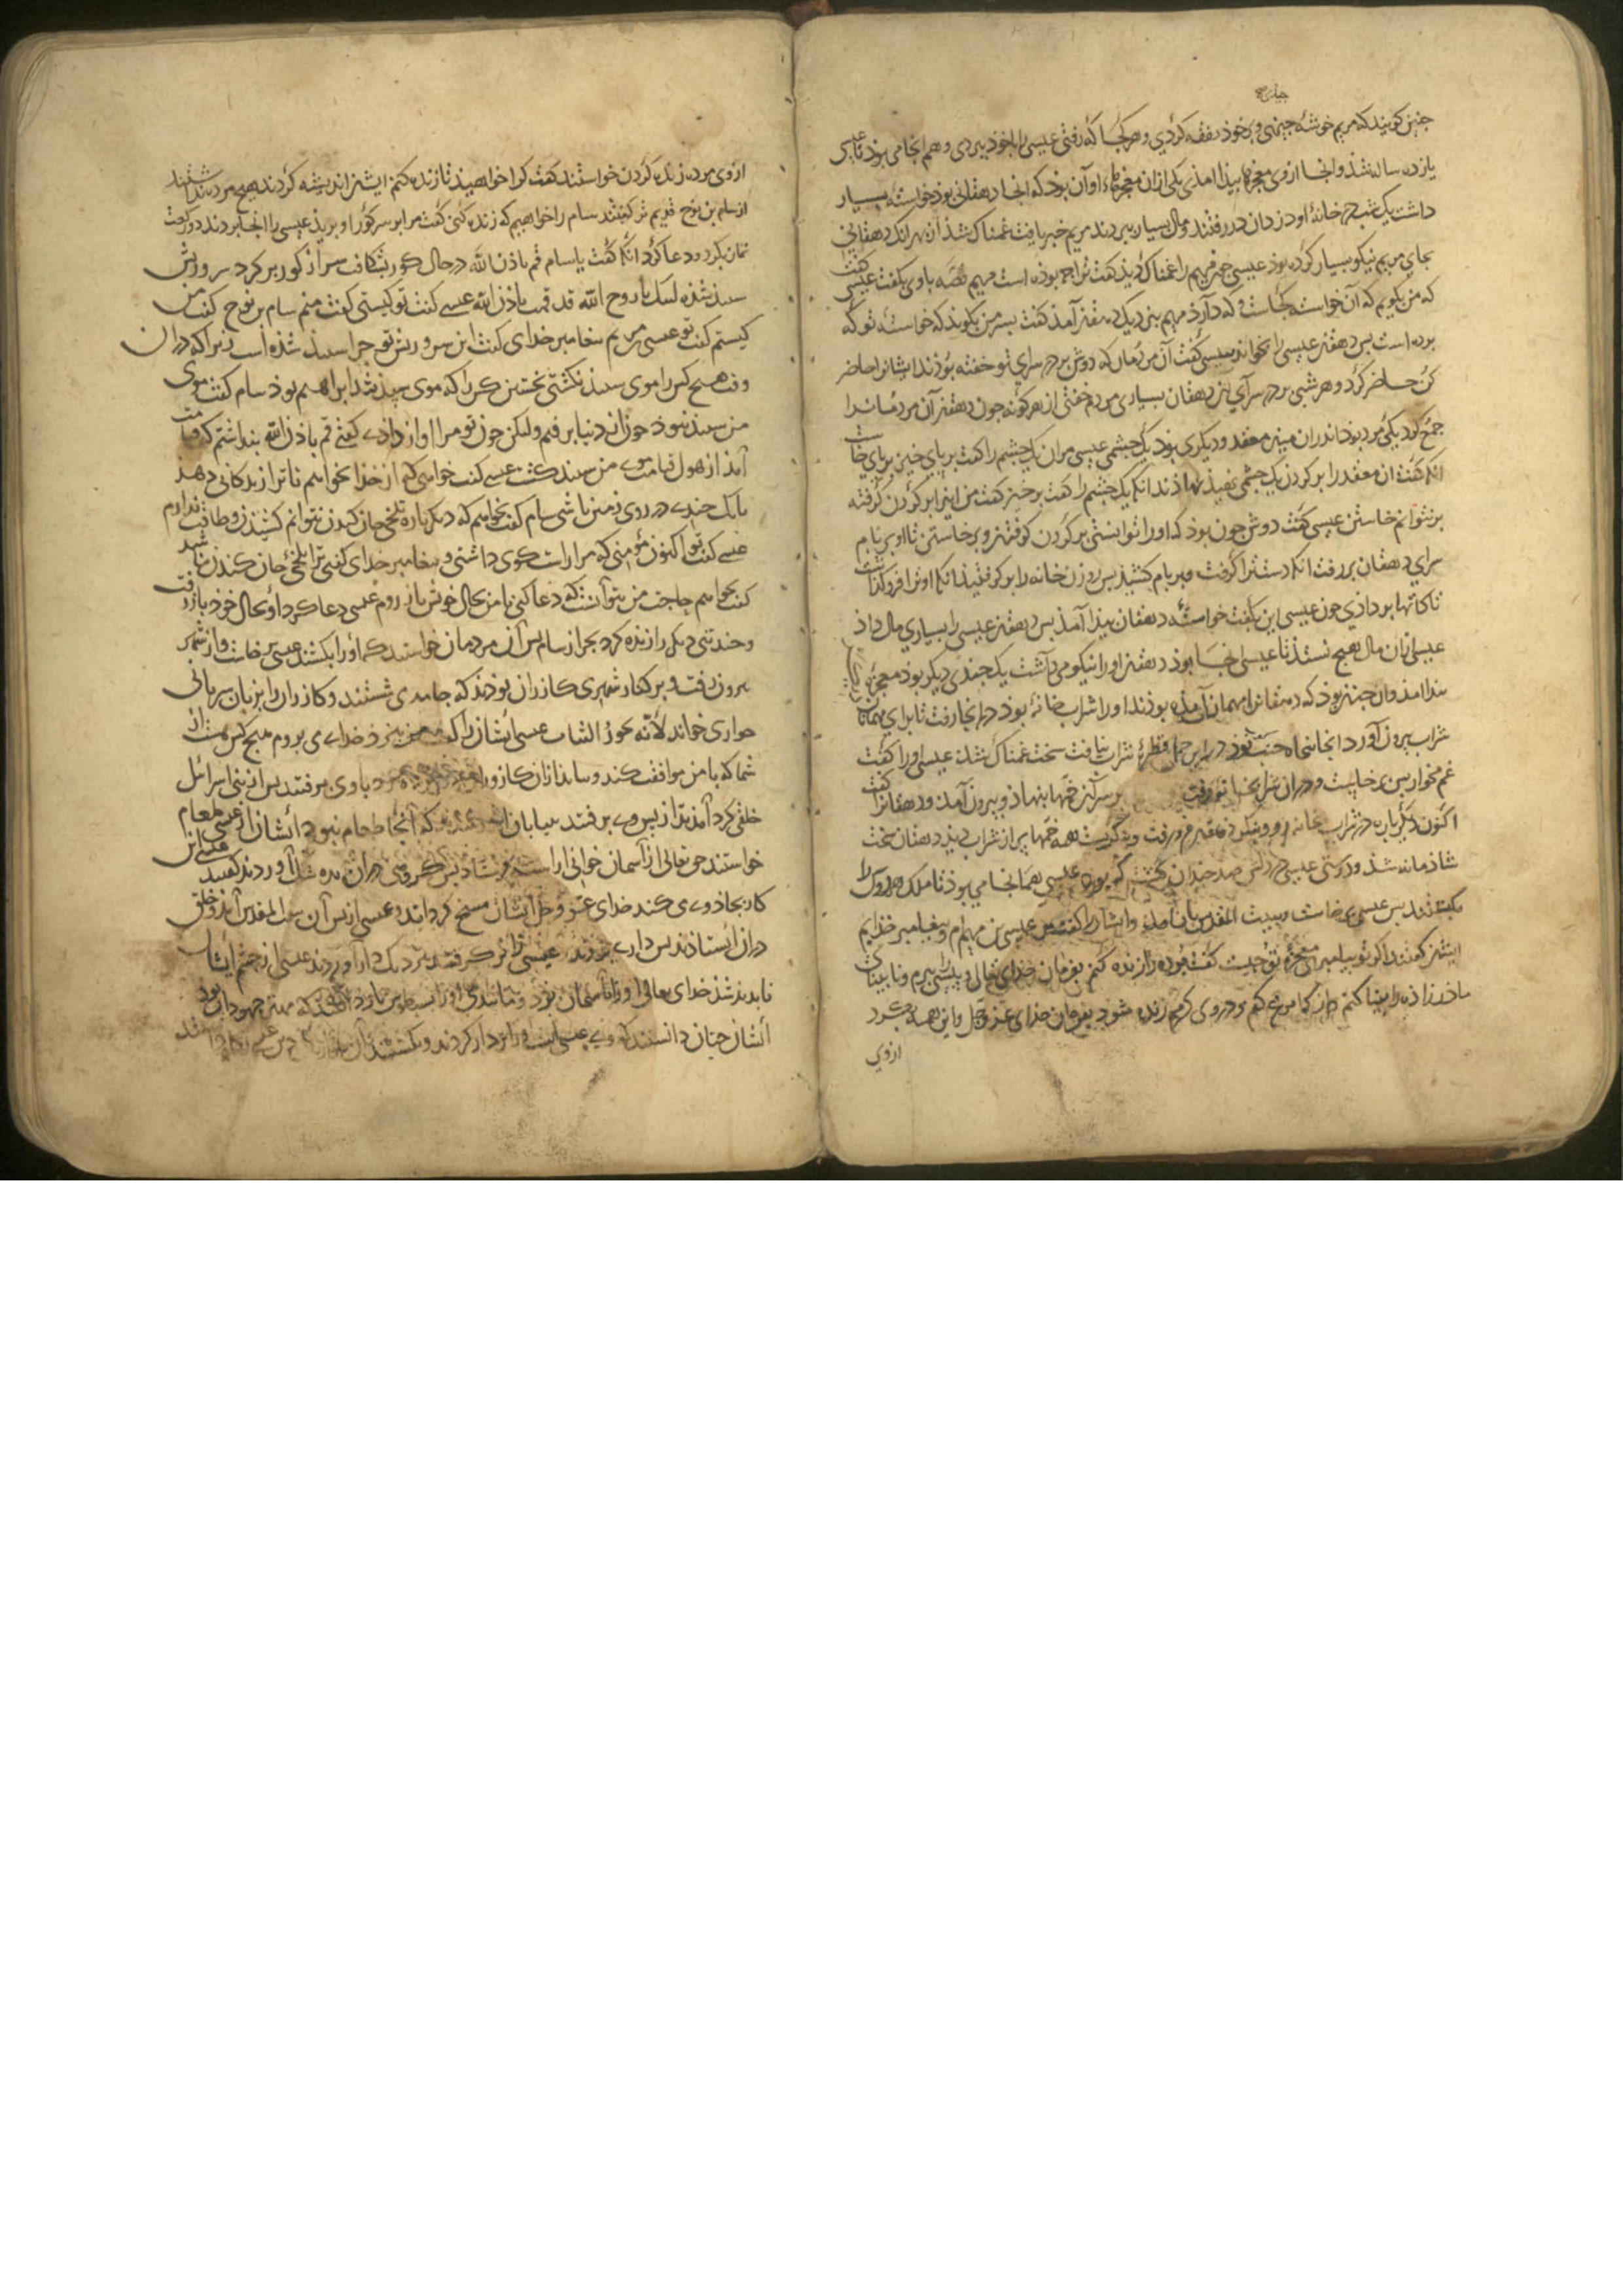 چنین کویند که مریم خوشه چیدی و بر خوذ نفقه کردی و هر کجا که رفتی عیسی را با خوذ ببردی و هم انجا می بوذ تا عیسی
یازده ساله شذ و انجا ازوی معجزها بیذا امذ یکی ازان معجزها او آن بوذ که انجا دهقانی بوذ خواسته بسیار
داشت یک شب در خانۀ او دزدان در رفتند و مال بسیار ببردند مریم خبر یافت غمناک شذ از بهر انک دهقان
بجای مریم نیکو بسیار کرده بوذ عیسی جون مریم را غمناک دیذ کفت ترا جه بوذه است مریم قصه باوی بکفت عیسی کفت
که من بکویم که آن خواسته کجاست و که دارذ مریم بنزدیک دهقان آمذ کفت بسر من بکویذ که خواسته تو که
برده است بس دهقان عیسی را بخواند عیسی کفت آن مردمان که دوش بر در سرای تو خفته بوذند ایشانرا حاضر
کن حاضر کرد و هر شبی بر در سرای این دهقان بسیاری مردم خفتی از هر کونه جون دهقان آن مردمانرا
جمع کرد یکی مرد بوذ اندران میان مقعد و دیکری بوذ یک جشمی عیسی مران یک جشم را کفت بر بای خیز بر بای خاست
انکه کفت ان مقعد را بر کردن یک جشمی نهیذ نهاذند انکه یک جشم را کفت برخیز کفت من اینرا بر کردن کرفته
برنتوانم خاستن عیسی کفت دوش جون بوذ که اورا توانستی بر کردن کرفتن و برخاستن تا او بر بام
سرای دهقان بررفت انکه دستترا کرفت و بر بام کشیذ بس روزن خانه را بر کرفتیذ انکه او ترا فرو کذاشت
تا کالها بر داذی جون عیسی این بکفت خواسته دهقان بیذا آمذ بس دهقان عیسی را بسیاری مال داذ
عیسی ازان مال هیج نستذ تا عیسی انجا بوذ دهقان اورا نیکو می داشت یک جندی دیکر بوذ معجزۀ
بیذا امذ وان جنان بوذ که دهقانرا مهمانان آمذه بوذند اورا شراب خانۀ بوذ در انجا رفت تا برای مهمانان
شراب بیرون آورد انجا بنجاه خنب بوذ در این همه قطرۀ شراب نیافت سخت غمناک شذ عیسی اورا کفت
غم مخور بس برخاست و دران شرابخانه رفت بر سر آن خمها بنهاذ و بیرون آمذ و دهقانرا کفت
اکنون دیکر باره در شراب خانه رو و بنکر دهقان در رفت و بنکریست همه خمها بر از شراب دیذ دهقان سخت
شاذمانه شذ و دوستی عیسی در دلش صد جندان کشت که بوذ عیسی هم انجا می بوذ تا ملک هرادوس را
بکشتند بس عیسی برخاست و ببیت المقدس باز آمذ و ایشانرا کفت من عیسی بن مریم ام و بیغامبر خذایم
ایشان کفتند اکر تو بیامبری معجزۀ تو جیست کفت مرده را زنده کنم بفرمان خذای تعالی و بیسی ببرم و نابینای
ماذرزاذ را بینا کنم و از کل مرغی کنم و در وی کرم زنده شوذ بفرمان خذای عز و جل و این همه بکرد
ازوی
ازوی مرده زنده کردن خواستند کفت کرا خواهیذ تا زنده کنم ایشان اندیشه کردند هیج مرده ندانستند
از سام بن نوح قدیم تر کفتند سام را خواهیم که زنده کنی کفت مرا بر سر کور او بریذ عیسی را انجا بردند دو رکعت
نماز بکرد و دعا کرد انکه کفت یا سام قم باذن الله در حال کور بشکافت سر از کور بر کرد سر و ریش
سبیذ شذه لبیک یا روح الله قد قمت باذن الله عیسی کفت تو کیستی کفت منم سام بن نوح کفت من
کیستم کفت تو عیسی مریم بیغامبر خدای کفت این سر و ریش تو جرا سبیذ شذه است زیرا که دران
وقت هیج کس را موی سبیذ نکشتی نخستین کس را که موی سبیذ شذ ابراهیم بوذ سام کفت موی
من سبیذ نبوذ جون از دنیا برفتم ولیکن جون تو مرا اواز دادی کفتی قم باذن الله بنداشتم که قیامت
آمذ از هول قیامت موی من سبیذ کشت عیسی کفت خواهی که از خذا بخواهم تا ترا زندکانی دهذ
تا یک جندی در روی زمین باشی سام کفت نخواهم که دیکر باره تلخی جان کندن نتوانم کشیذن و طاقت ندارم
عیسی کفت تو اکنون مؤمنی که مرا راست کوی داشتی و بیغامبر خدای کفتی ترا تلخی جان کندن نباشد
کفت نخواهم حاجت من بتو آنست که دعا کنی تا من بحال خویش باز روم عیسی دعا کرد او بحال خوذ باز رفت
و جند تنی دیکر را زنده کرد بجز از سام بس آن مردمان خواستند که اورا بکشند عیسی برخاست و از شهر
بیرون رفت و بر کنار شهری کازران بوذند که جامه می شستند و کازران را بزبان سریانی
حواری خواند لأنه یحور الثیاب عیسی ایشان را کفت من بنزد خدای می بروم هیج کس هست از
شما که با من موافقت کند باوی برفتند بس از بنی اسرائیل
خلقی کرد آمذند از بس وی برفتند به بیابان که آنجا طعام نبود ایشان از عیسی طعام
خواستند حق تعالی از آسمان خوانی اراسته فرستاذ بس کروهی دران بده شک آوردند کفتند عیسی این
کار بجاذوی می کند خدای عز و جل ایشان مسخ کردانید و عیسی از بس آن بیت المقدس آمد و خلق
دران ایستاذند بس داری بزدند عیسی را بکرفتند نزدیک دار آوردند عیسی از جشم ایشان
نابدید شذ خدای تعالی اورا بآسمان برد و مانندی او را که مهتر جهودان بود
ایشان جنان دانستند که وی عیسی است ورا بر دار کردند و بکشتند